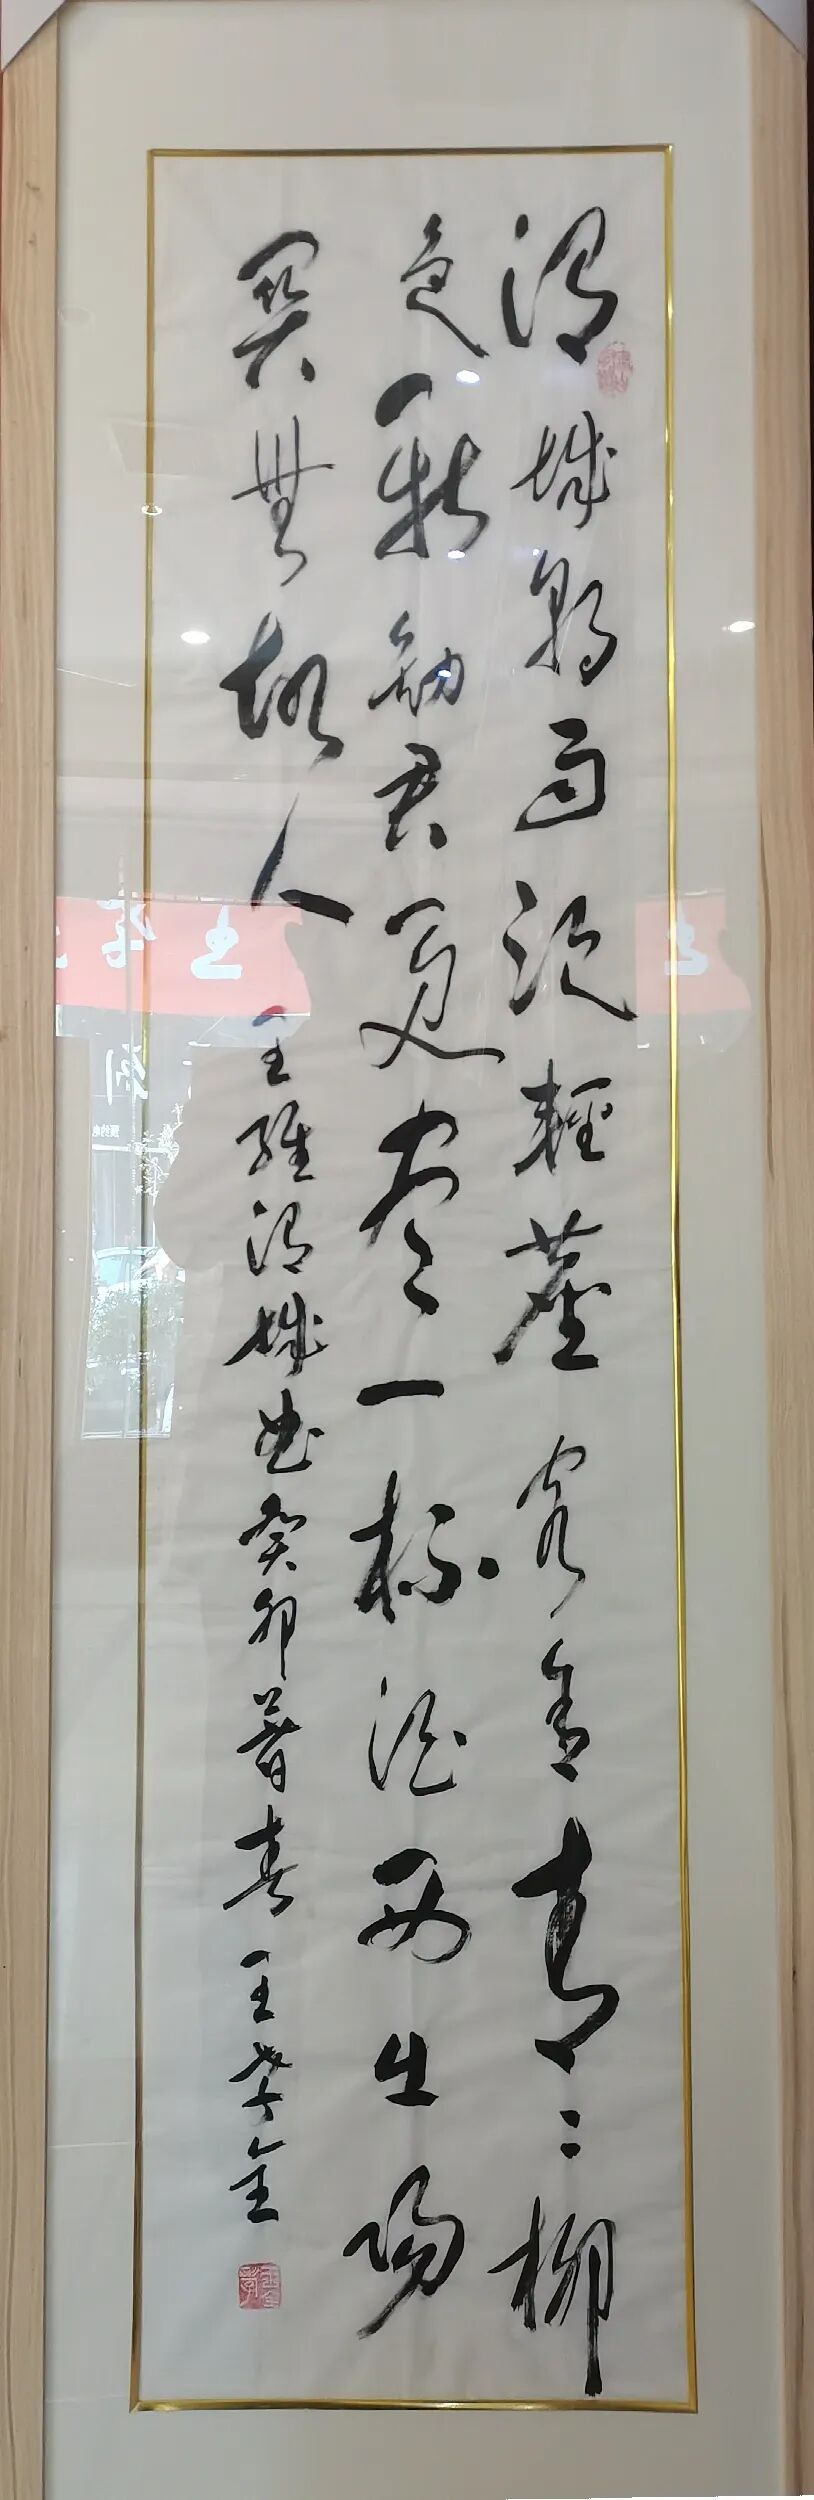 渭城朝雨浥輕塵客舍青〻柳
色新勸君更盡一杯酒西出陽
關無故人 王維渭城曲癸卯暮春王孝金